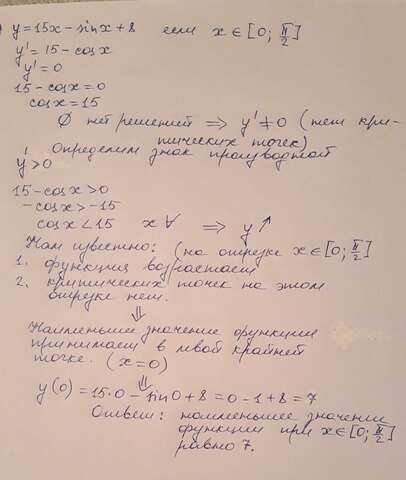 y = 15x - sinx + 8 если x ∈ [0; π/2]
y' = 15 - cosx
y' = 0
15 - cosx = 0
cosx = 15
∅ нет решений ⇒ y' ≠ 0 (нет кри-
тических точек)
Определим знак производной
y' > 0
15 - cosx > 0
-cosx > -15
cosx < 15 x ∀ ⇒ y ↑
Нам известно: (на отрезке x ∈ [0; π/2]
1. функция возрастает
2. критических точек на этом
отрезке нет.
⇓
Наименьшее значение функции
принимает в левой крайней
точке. (x = 0)
⇓
y(0) = 15·0 - sin0 + 8 = 0 - 1 + 8 = 7
Ответ: наименьшее значение
функции при x ∈ [0; π/2]
равно 7.